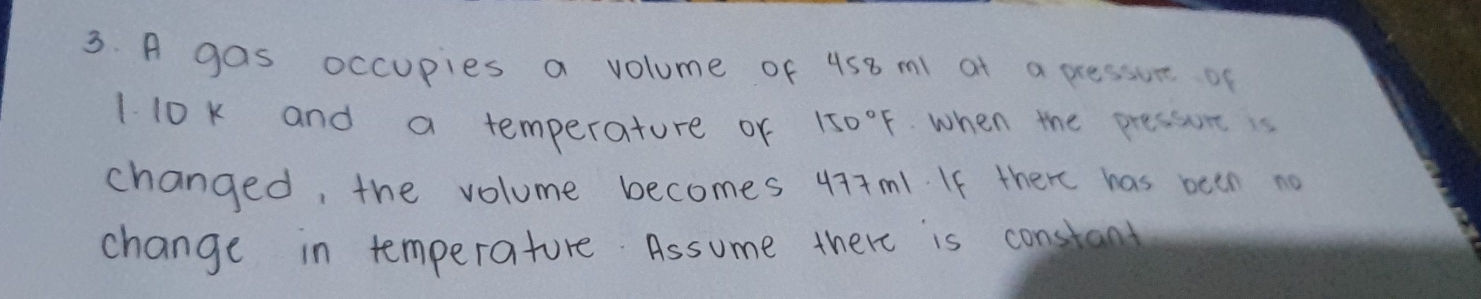 3. A gas occupies a volume of 458 ml at a pressure of
1.10 K and a temperature of 150°F. When the pressure is
changed, the volume becomes 477 ml. If there has been no
change in temperature. Assume there is constant